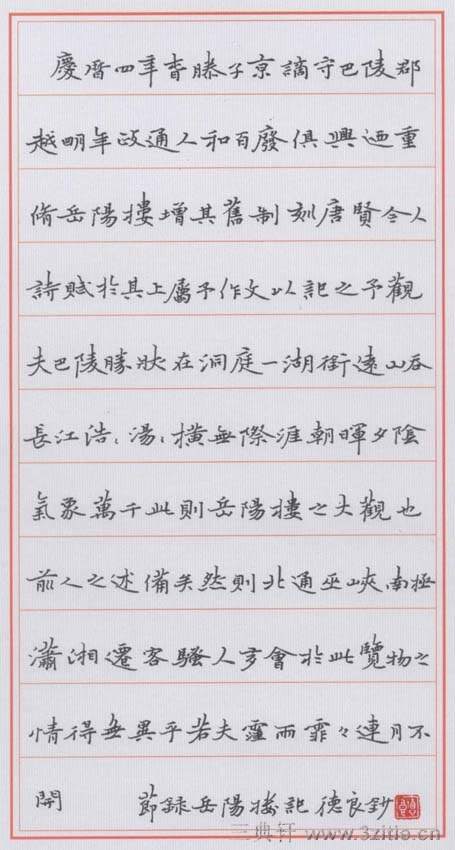 慶曆四年春滕子京謫守巴陵郡
越明年政通人和百廢俱興迺重
脩岳陽樓增其舊制刻唐賢今人
詩賦於其上屬予作文以記之予觀
夫巴陵勝狀在洞庭一湖銜遠山吞
長江浩〻湯〻橫無際涯朝暉夕陰
氣象萬千此則岳陽樓之大觀也
前人之述備矣然則北通巫峽南極
瀟湘遷客騷人多會於此覽物之
情得無異乎若夫霪雨霏々連月不
開 節録岳陽樓記 德良鈔
三典轩 www.3zitie.cn